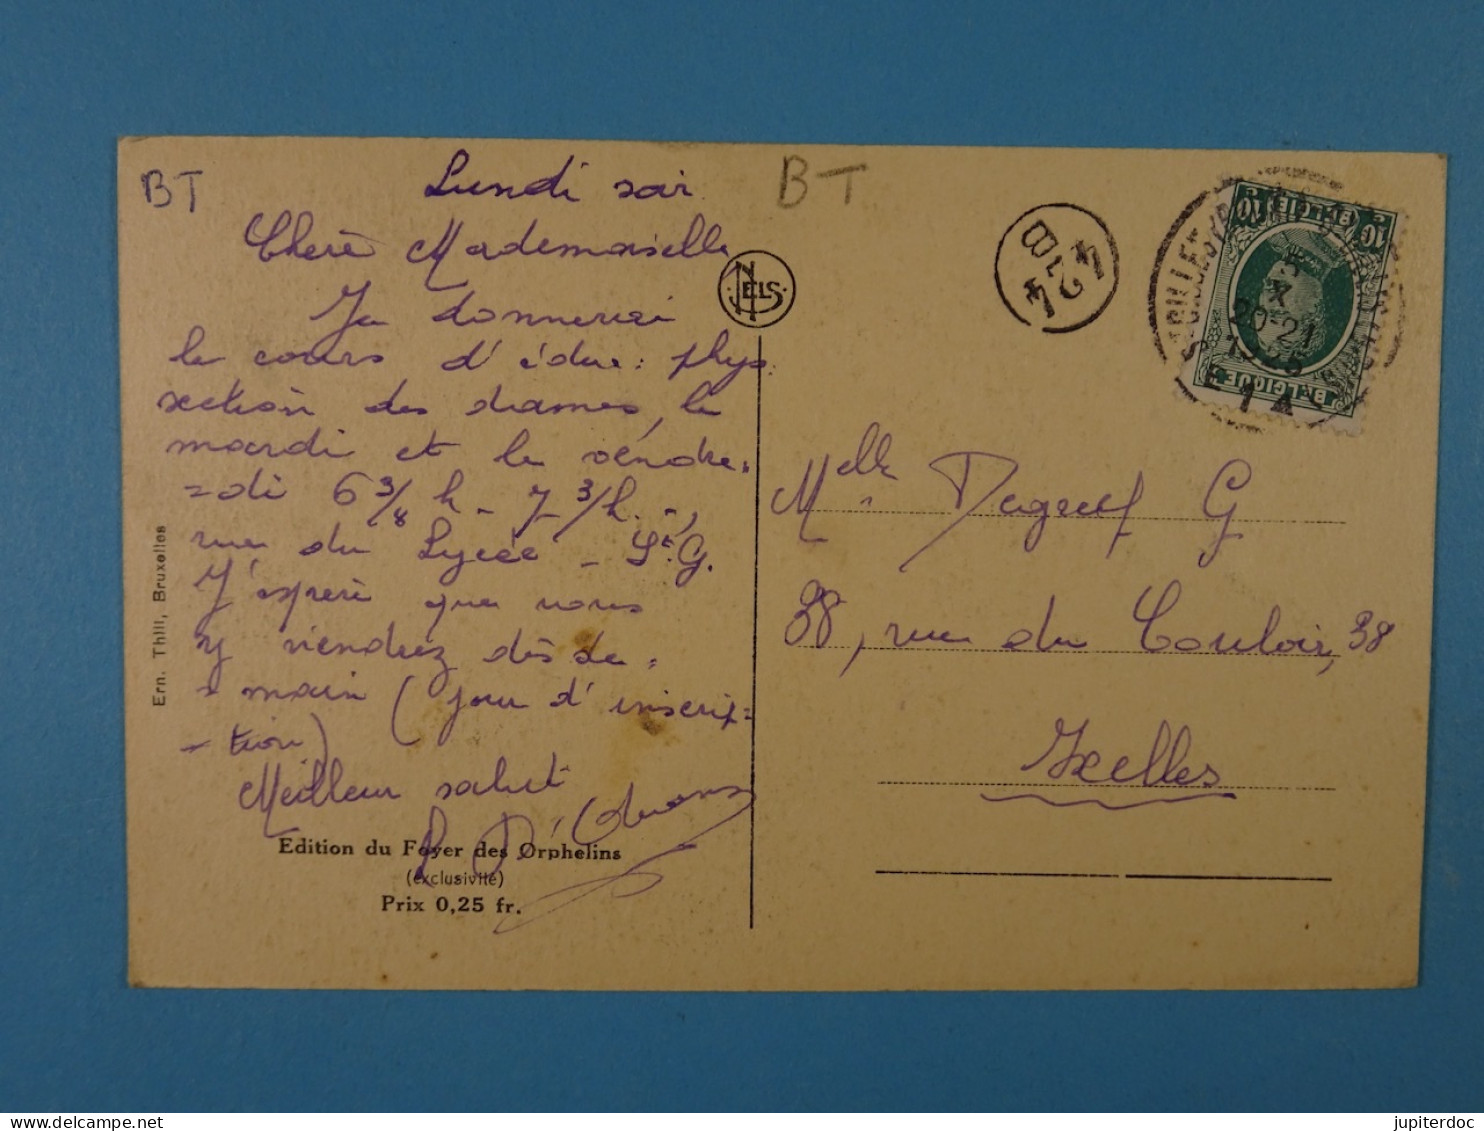 BT
Lundi soir
Chère Mademoiselle
Je donnerai
le cours d'édu: phys:
section des dames, le
mardi et le vendre=
=di 6 3/4 h - 7 3/4 h.,
rue du Lycée - St. G.
J'espère que vous
y viendrez dès de=
=main (jour d'inscrip=
=tion)
Meilleur salut
Edition du Foyer des Orphelins
(exclusivité)
Prix 0,25 fr.
Ern. Thill, Bruxelles
NELS
BT
B
424
BELGIQUE
BELGIE
10c
10c
5
X
20-21
1925
1A
Melle Degreef G
38, rue du Couloir, 38
Ixelles
jupiterdoc